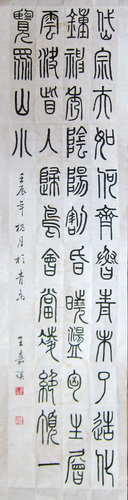 岱宗夫如何齊魯青未了造化
鍾神秀陰陽割昏曉盪匈生層
雲決眥入歸鳥會當凌絕頂一
覽眾山小
壬辰年 月於青島
王